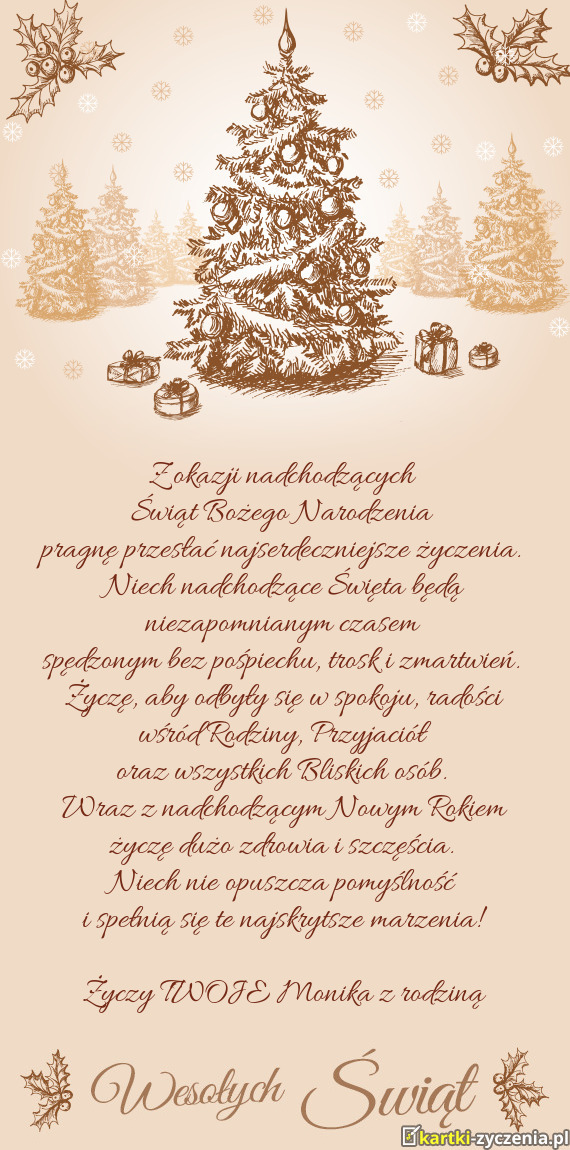 Z okazji nadchodzących
Świąt Bożego Narodzenia
pragnę przesłać najserdeczniejsze życzenia.
Niech nadchodzące Święta będą
niezapomnianym czasem
spędzonym bez pośpiechu, trosk i zmartwień.
Życzę, aby odbyły się w spokoju, radości
wśród Rodziny, Przyjaciół
oraz wszystkich Bliskich osób.
Wraz z nadchodzącym Nowym Rokiem
życzę dużo zdrowia i szczęścia.
Niech nie opuszcza pomyślność
i spełnią się te najskrytsze marzenia!
Życzy TWOJE Monika z rodziną
Wesołych Świąt
kartki-zyczenia.pl